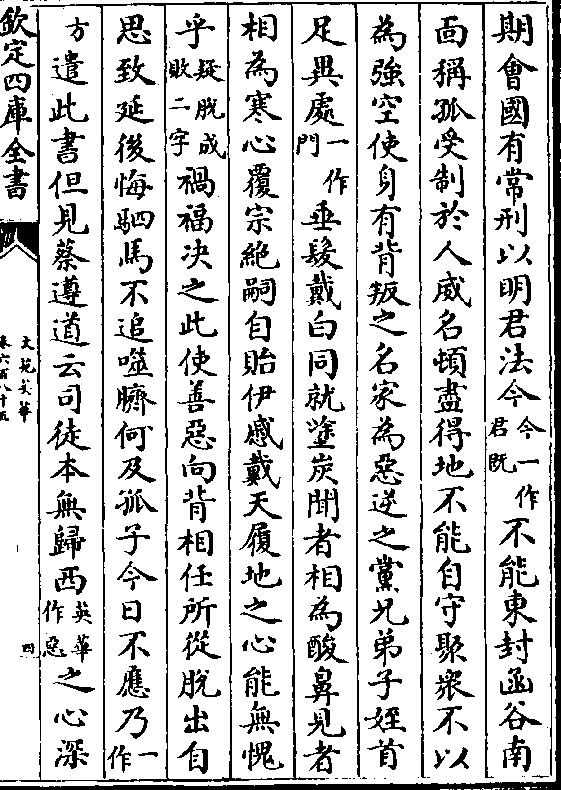 期會國有常刑以明君法今今一作君既不能東封函谷南
面稱孤受制於人威名頓盡得地不能自守聚衆不以
為強空使身有背叛之名家為惡逆之黨兄弟子姪首
足異處一作門垂髮戴白同就塗炭聞者相為酸鼻見者
相為寒心覆宗絶嗣自貽伊慼戴天履地之心能無愧
乎疑脱成敗二字禍福決之此使善惡向背相任所從脱出自
思致延後悔駟馬不追噬臍何及孤子今日不應乃一作
方遣此書但見蔡遵道云司徒本無歸西英華作惡之心深
欽定四庫全書
文苑英華
卷六百八十五
四